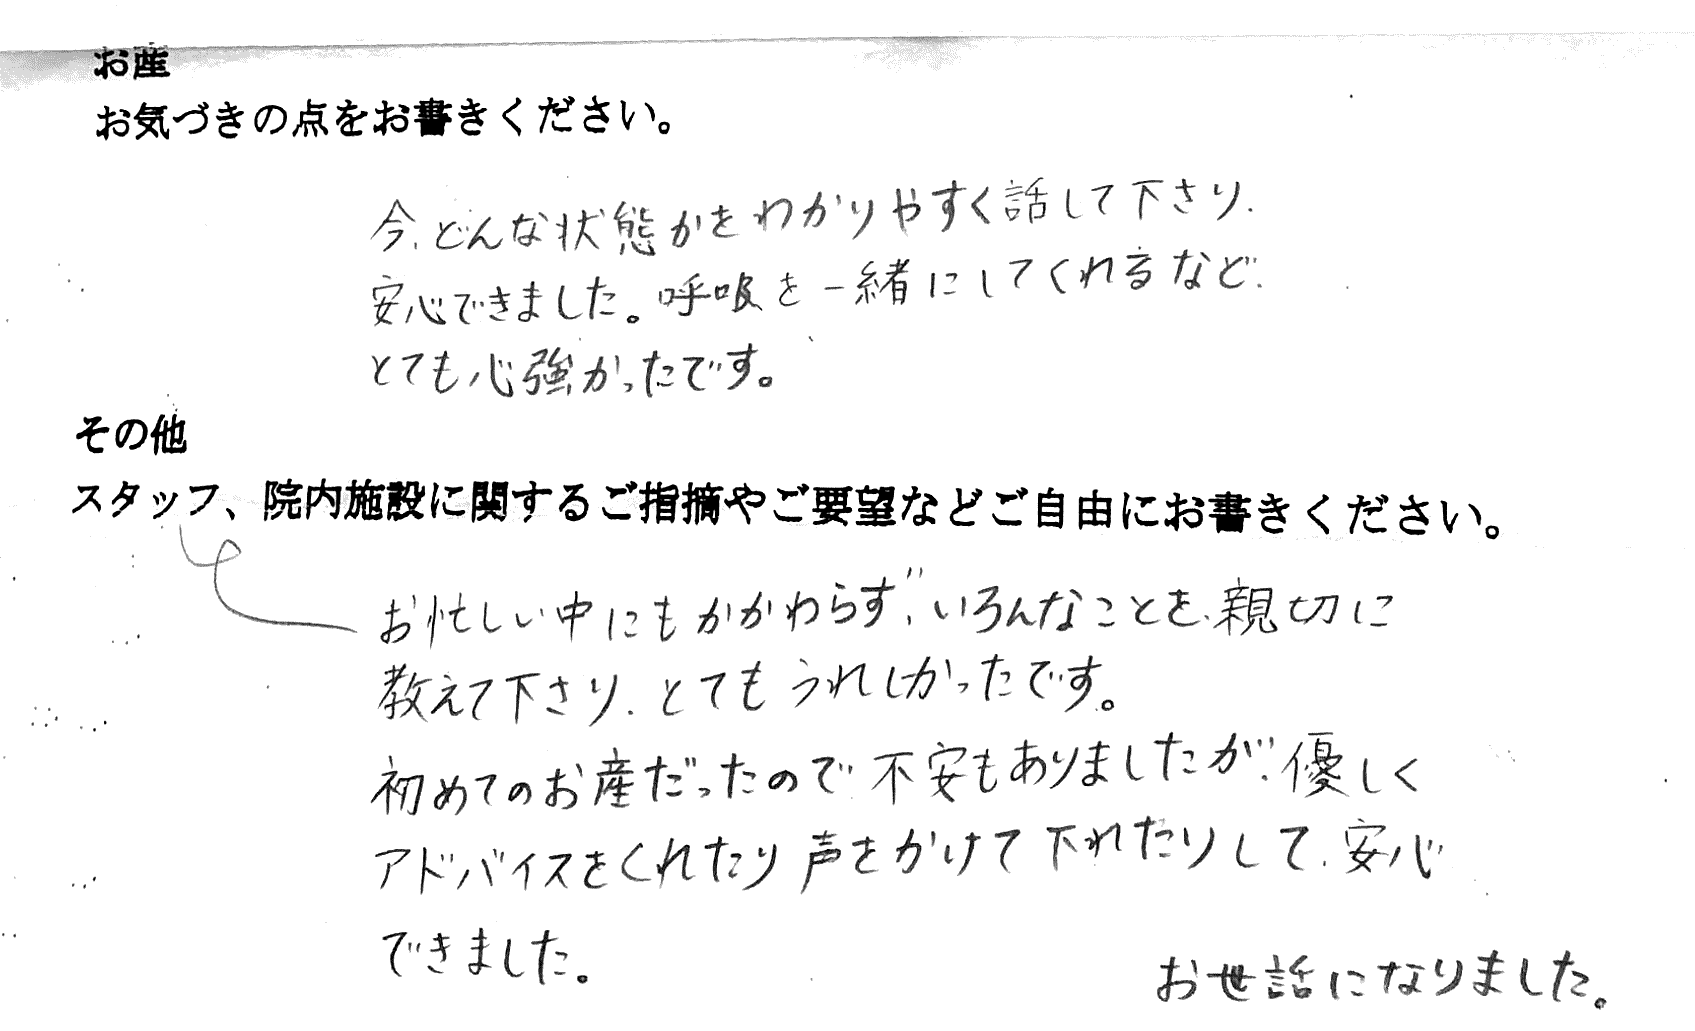 お産
お気づきの点をお書きください。
今、どんな状態かをわかりやすく話して下さり、
安心できました。呼吸を一緒にしてくれるなど、
とても心強かったです。
その他
スタッフ、院内施設に関するご指摘やご要望などご自由にお書きください。
お忙しい中にもかかわらず、いろんなことを、親切に
教えて下さり、とてもうれしかったです。
初めてのお産だったので不安もありましたが、優しく
アドバイスをくれたり声をかけて下れたりして、安心
できました。
お世話になりました。